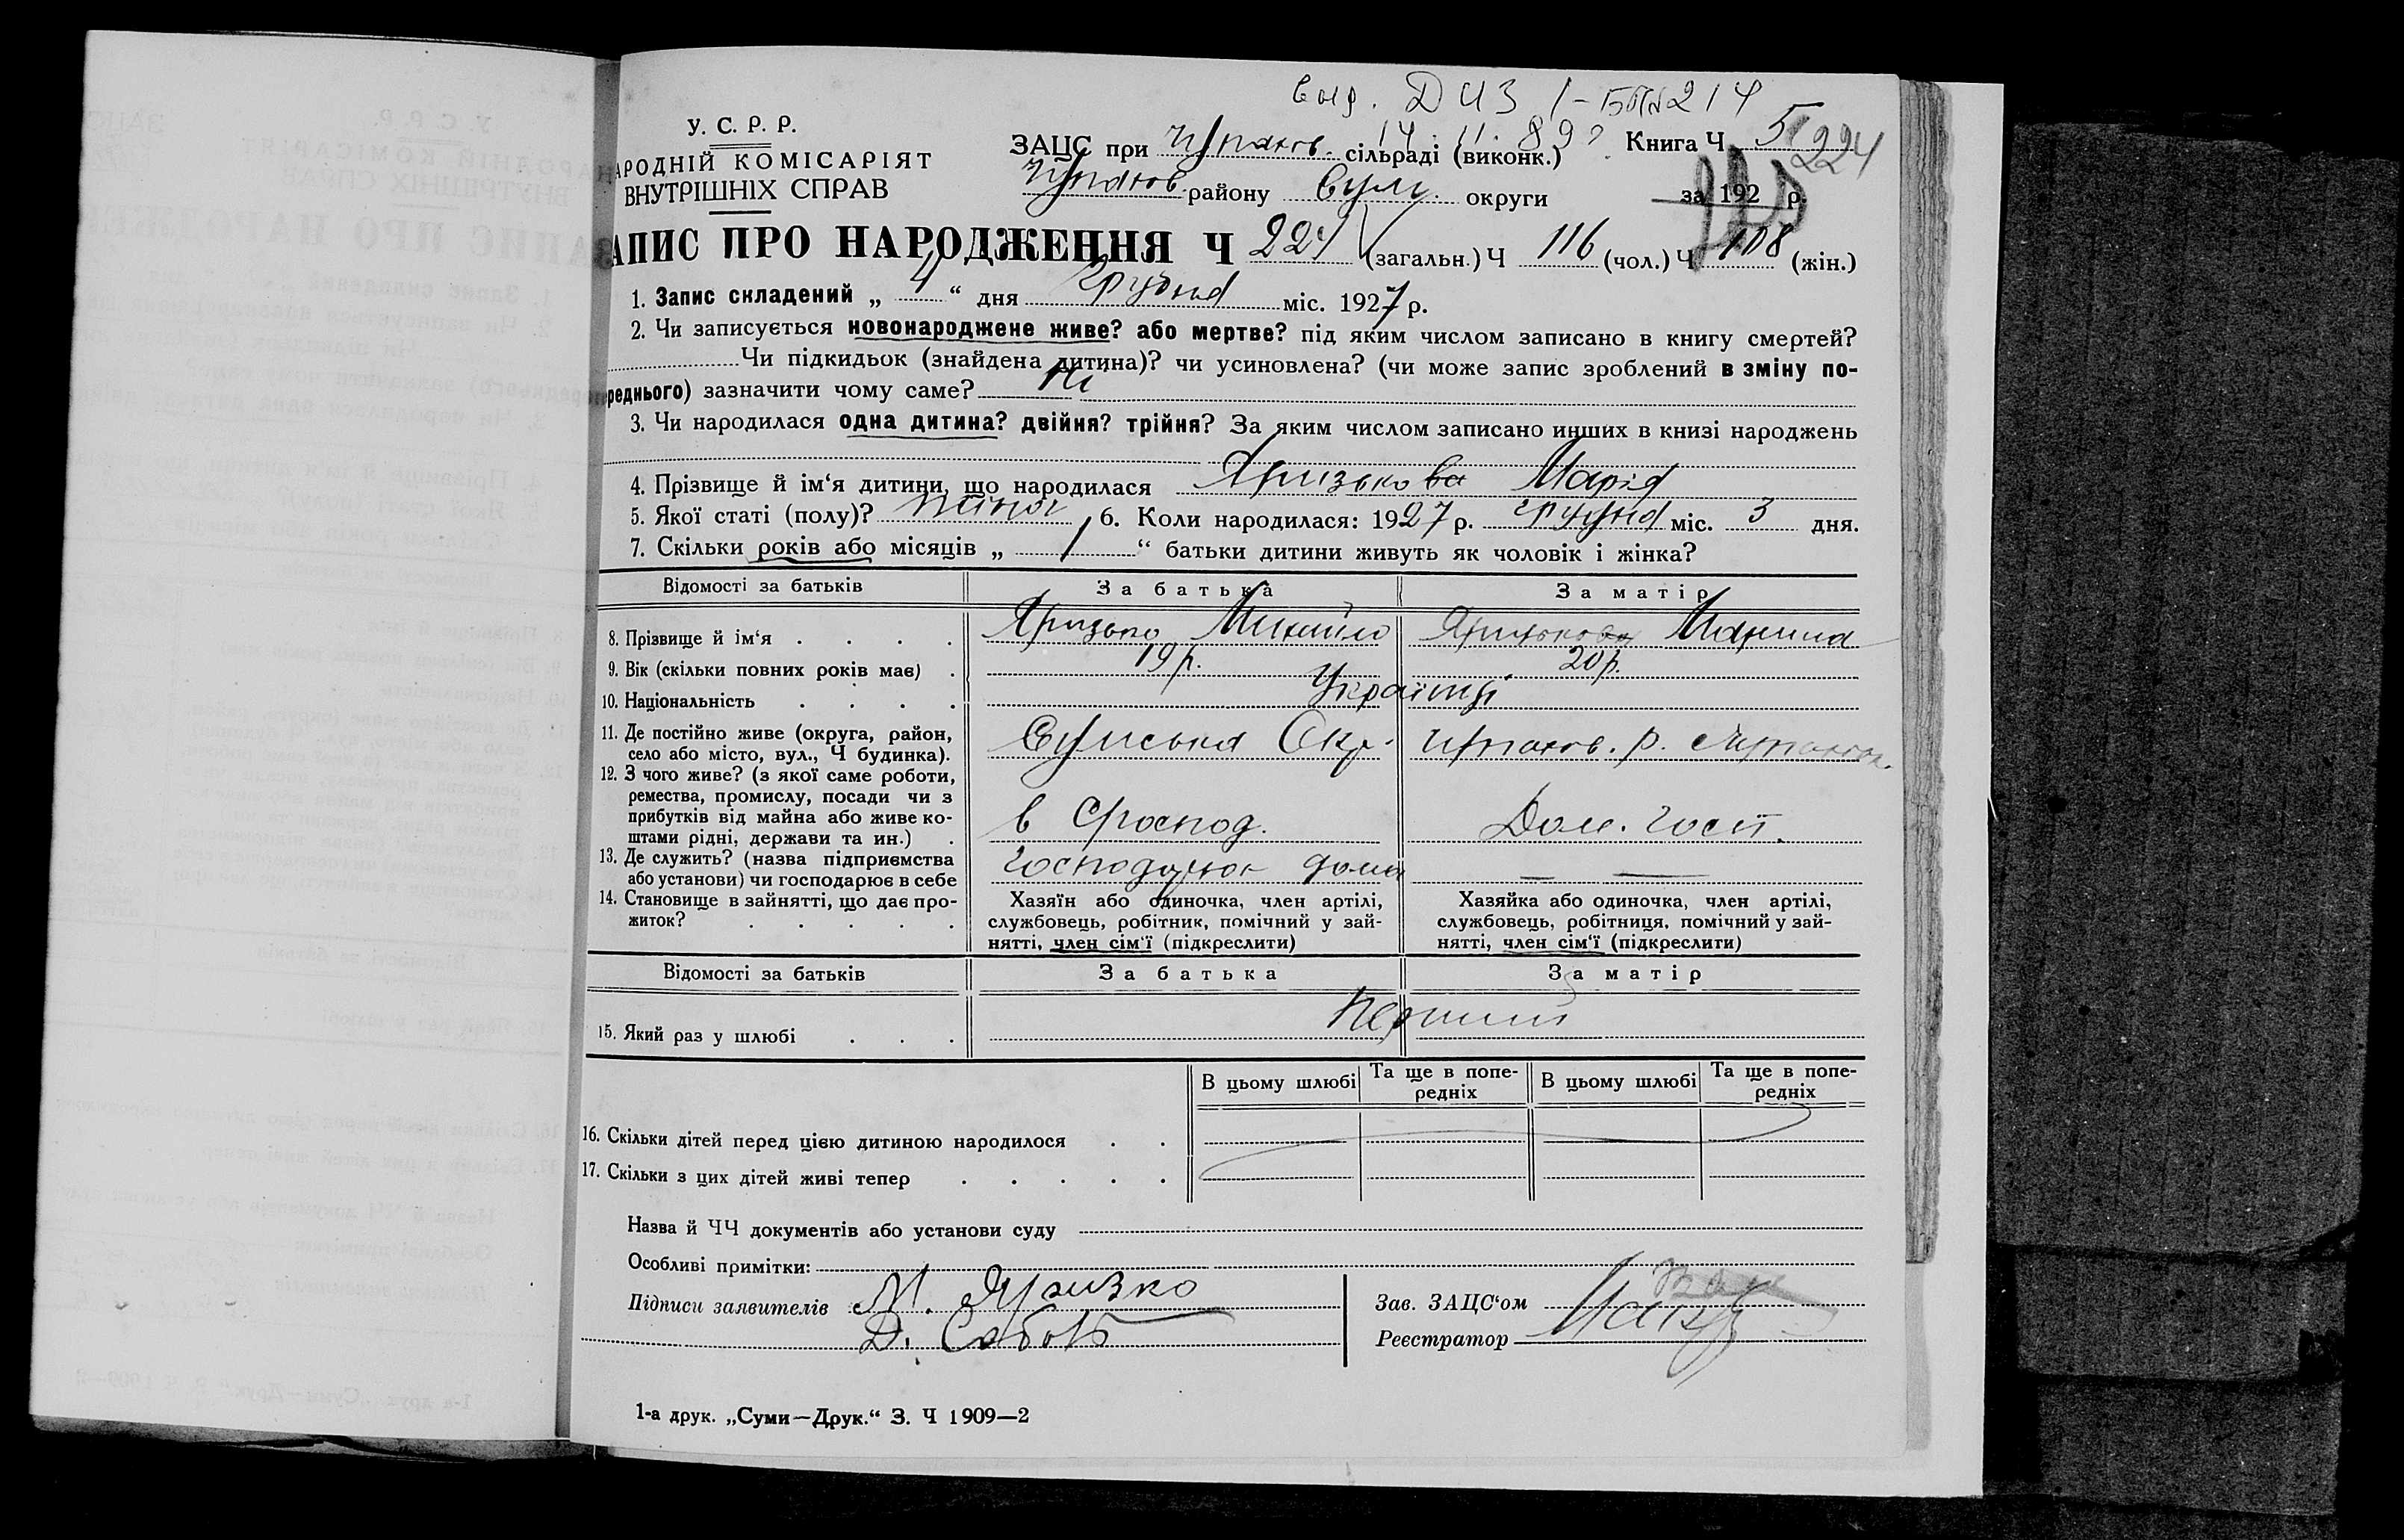 вид. ДИЗ I-БП № 214
У. С. Р. Р.
14. 11. 89
Книга Ч. 5
224
АРОДНІЙ КОМІСАРІЯТ
ВНУТРІШНІХ СПРАВ
ЗАЦС при сільраді (виконк.)
району Сум. округи
за 192 р.
АПИС ПРО НАРОДЖЕННЯ Ч 224 (загальн.) Ч 116 (чол.) Ч 108 (жін.)
1. Запис складений „ 4 “ дня Грудня міс. 1927 р.
2. Чи записується новонароджене живе? або мертве? під яким числом записано в книгу смертей?
Чи підкидьок (знайдена дитина)? чи усиновлена? (чи може запис зроблений в зміну по-
реднього) зазначити чому саме? Ні
3. Чи народилася одна дитина? двійня? трійня? За яким числом записано инших в книзі народжень
4. Прізвище й ім‘я дитини, що народилася Яризькова Марія
5. Якої статі (полу)? жіноч 6. Коли народилася: 1927 р. грудня міс. 3 дня.
7. Скільки років або місяців „ 1 “ батьки дитини живуть як чоловік і жінка?
Відомості за батьків За батька За матір
8. Прізвище й ім‘я Яризько Михайло Яризькова Марина
9. Вік (скільки повних років має) 19 р. 20 р.
10. Національність Українці
11. Де постійно живе (округа, район,
село або місто, вул., Ч будинка). Сумська Окр.
12. З чого живе? (з якої саме роботи,
ремества, промислу, посади чи з
прибутків від майна або живе ко-
штами рідні, держави та ин.) Дом. госп.
13. Де служить? (назва підприємства
або установи) чи господарює в себе дома
14. Становище в зайнятті, що дає про-
житок?
Хазяїн або одиночка, член артілі,
службовець, робітник, помічний у зай-
нятті, член сім‘ї (підкреслити)
Хазяйка або одиночка, член артілі,
службовець, робітниця, помічний у зай-
нятті, член сім‘ї (підкреслити)
Відомості за батьків За батька За матір
15. Який раз у шлюбі Перший
В цьому шлюбі Та ще в попе-
редніх В цьому шлюбі Та ще в попе-
редніх
16. Скільки дітей перед цією дитиною народилося
17. Скільки з цих дітей живі тепер
Назва й ЧЧ документів або установи суду
Особливі примітки:
Підписи заявителів М. Яризко
Зав. ЗАЦС‘ом
Д.
Реєстратор
1-а друк. „Суми—Друк.“ З. Ч 1909—2